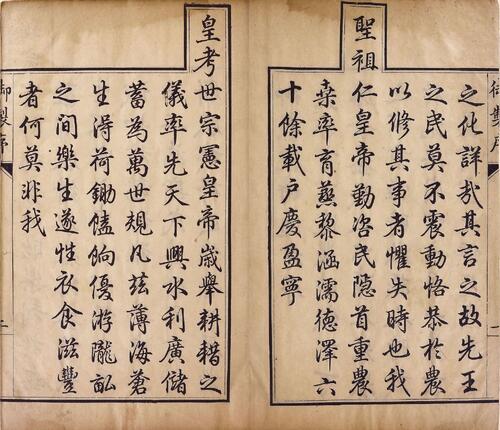 之化詳哉其言之故先王
之民莫不震動恪恭於農
以修其事者懼失時也我
聖祖仁皇帝勤咨民隱首重農
桑率育蒸黎涵濡德澤六
十餘載戶慶盈寧
皇考世宗憲皇帝歲舉耕耤之
儀率先天下興水利廣儲
蓄為萬世規凡茲薄海蒼
生得荷鋤饁餉優游隴畝
之間樂生遂性衣食滋豐
者何莫非我
御製序